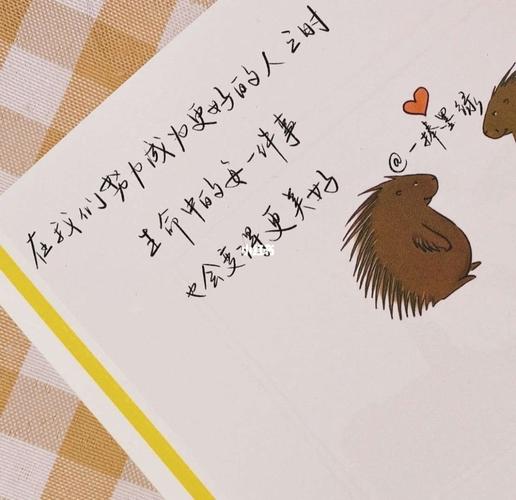 在我们努力成为更好的人之时
生命中的每一件事
也会变得更美好
@一捧墨绿